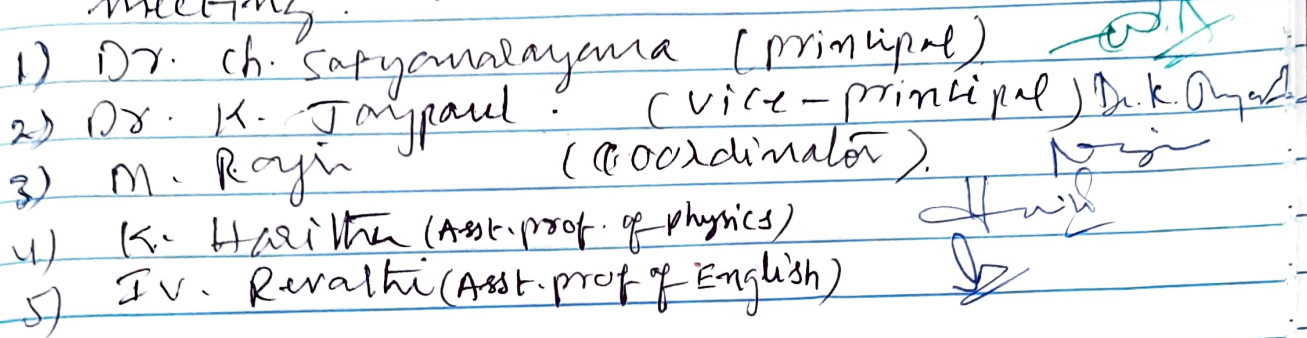 meeting.
1) Dr. Ch. Satyanarayana (principal)
2) Dr. K. Jaypaul. (vice-principal) Dr. K.
3) M. Rajin (Coordinator).
4) K. Haritha (Asst. prof. of physics)
5) I V. Revathi (Asst. prof of English)